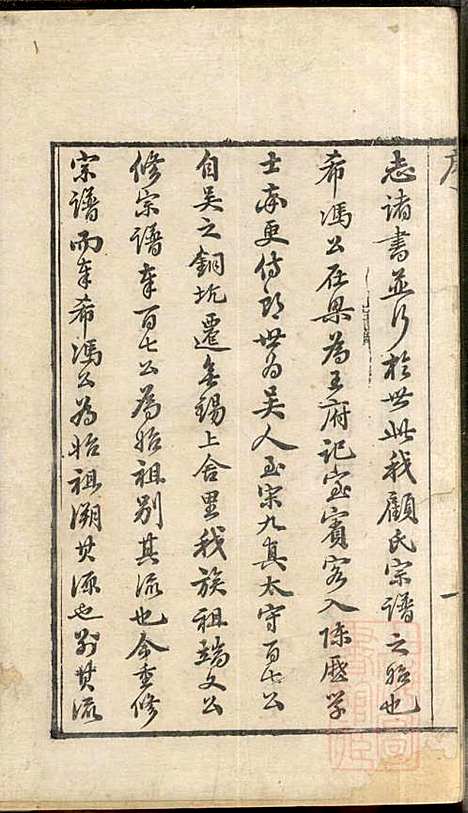 志諸書並行於世此我顧氏宗譜之始也
希馮公在梁為王府記室賓客入陳歷學
士黃更侍郎世為吳人至宋九真太守百七公
自吳之銅坑遷無錫上舍里我族祖端文公
修宗譜奉百七公為始祖別其流也今重修
宗譜而奉希馮公為始祖溯其源也別其流